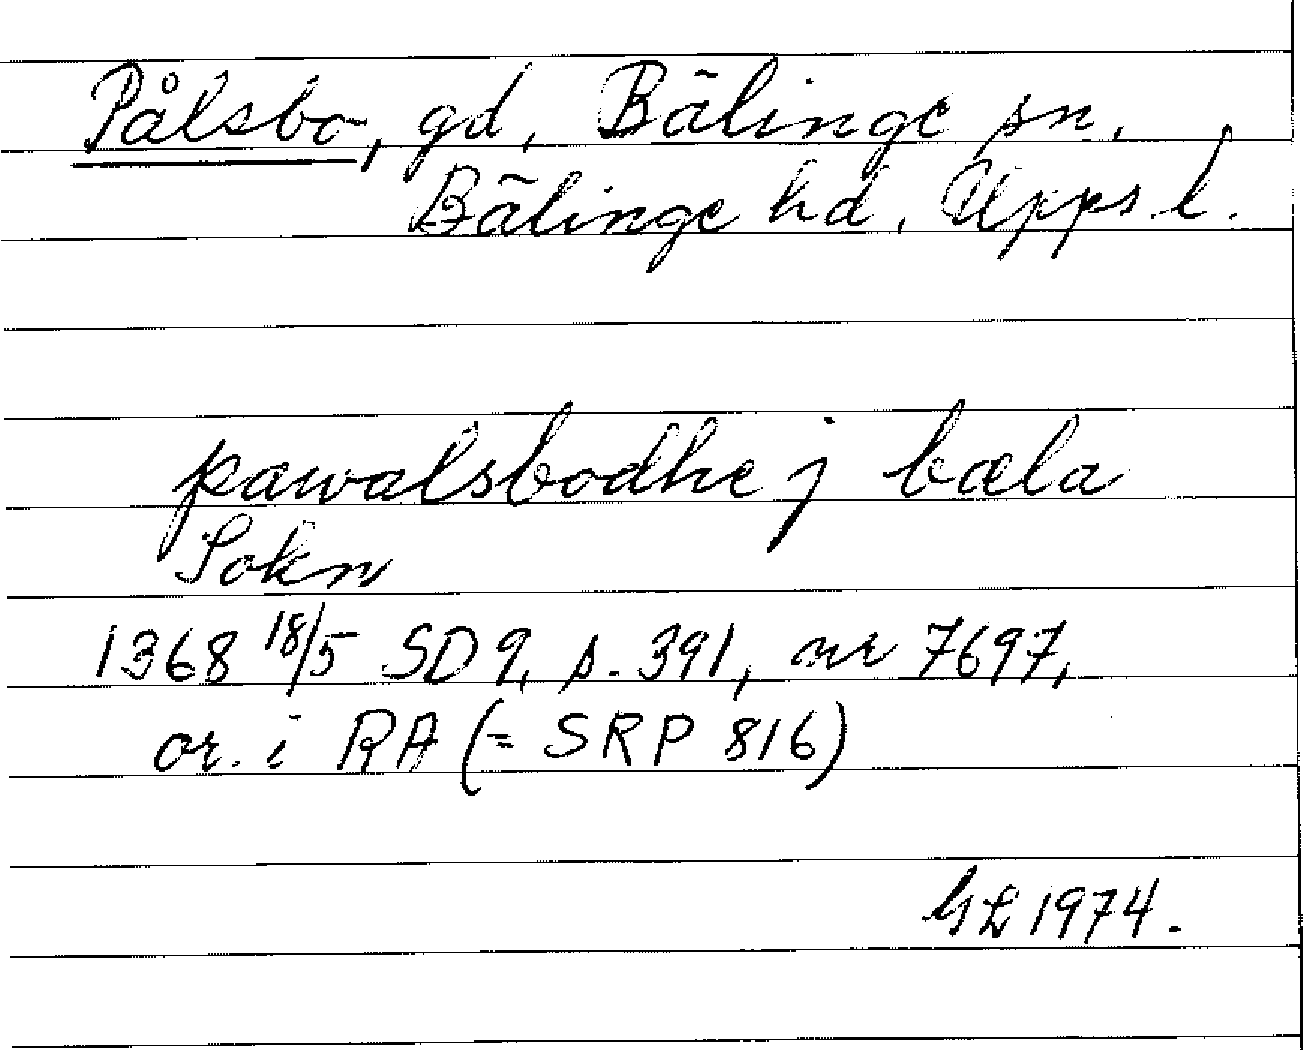 Pålsbo, gd, Bälinge sn,
Bälinge hd, Upps. l.
pawalsbodhe j bæla
Sokn
1368 18/5 SD 9, s. 391, nr 7697,
or. i RA (= SRP 816)
GL 1974.